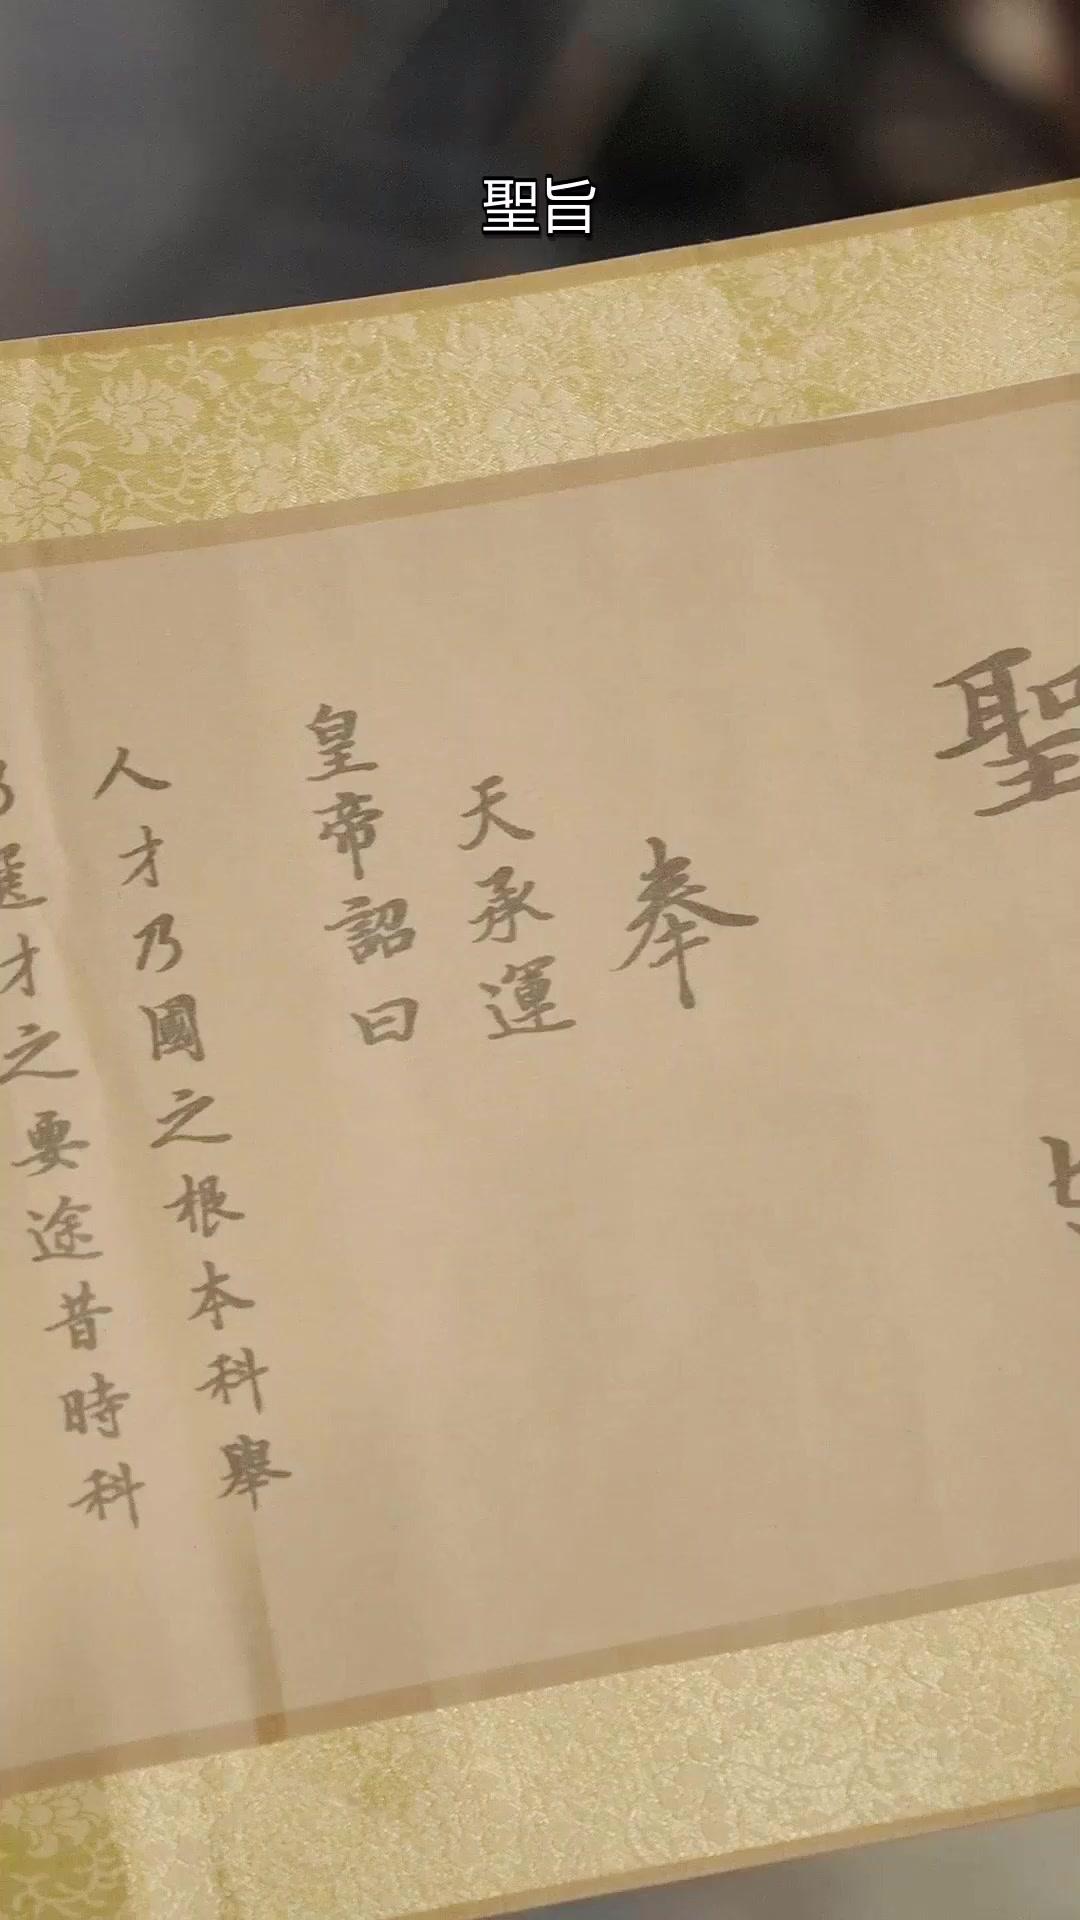 聖旨
聖旨
奉
天承運
皇帝詔曰
人才乃國之根本科舉
乃選才之要途昔時科